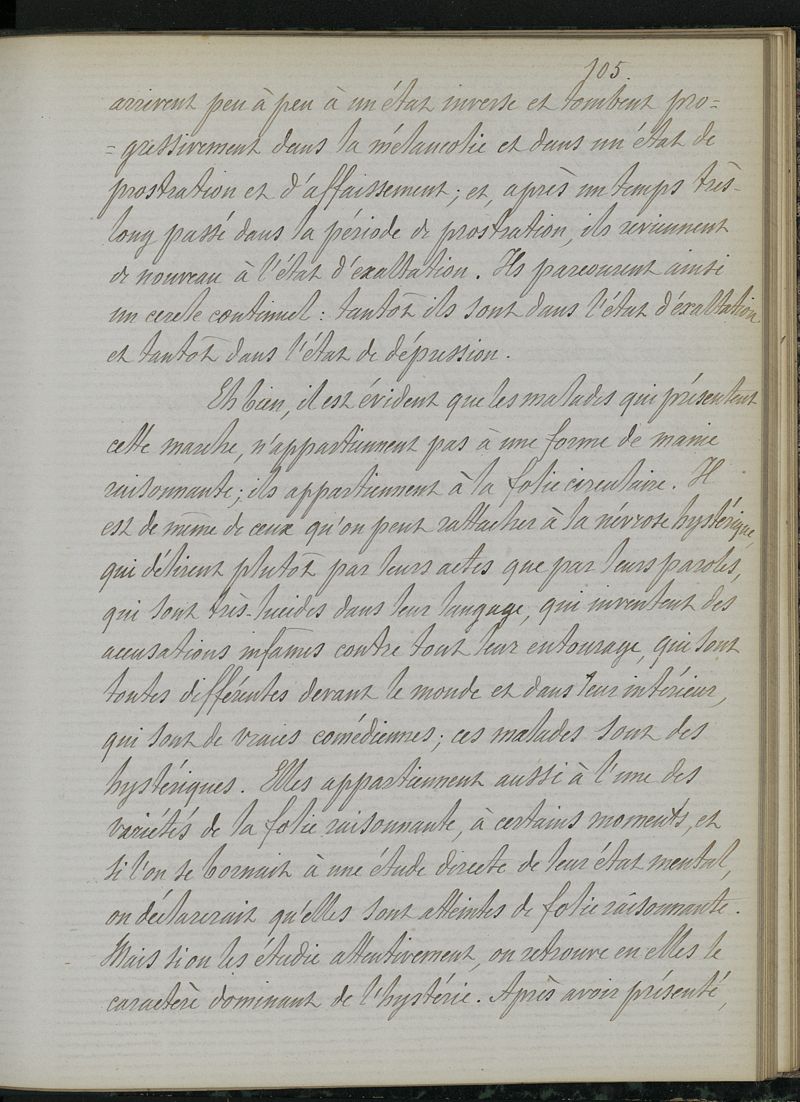 105.
arrivent peu à peu à un état inverse et tombent pro=
=gressivement dans la mélancolie et dans un état de
prostration et d'affaissement; et, après un temps très-
long passé dans la période de prostration, ils reviennent
de nouveau à l'état d'exaltation. Ils parcourent ainsi
un cercle continuel: tantôt ils sont dans l'état d'exaltation
et tantôt dans l'état de dépression.
Eh bien, il est évident que les malades qui présentent
cette marche, n'appartiennent pas à une forme de manie
raisonnante; ils appartiennent à la folie circulaire. Il
est de même de ceux qu'on peut rattacher à la névrose hystérique,
qui délirent plutôt par leurs actes que par leurs paroles,
qui sont très-lucides dans leur langage, qui inventent des
accusations infâmes contre tout leur entourage, qui sont
toutes différentes devant le monde et dans leur intérieur,
qui sont de vraies comédiennes; ces malades sont des
hystériques. Elles appartiennent aussi à l'une des
variétés de la folie raisonnante, à certains moments, et
si l'on se bornait à une étude directe de leur état mental,
on déclarerait qu'elles sont atteintes de folie raisonnante.
Mais si on les étudie attentivement, on retrouve en elles le
caractère dominant de l'hystérie. Après avoir présenté,